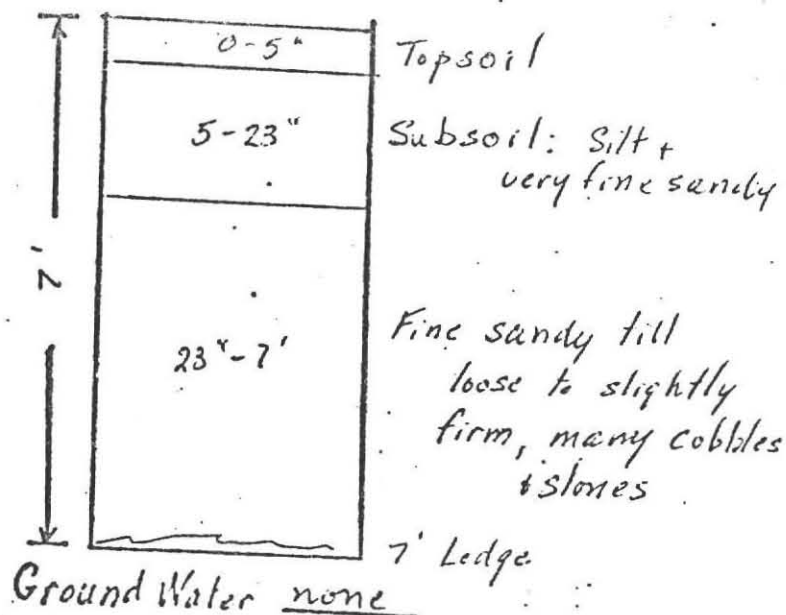 0-5" Topsoil
5-23" Subsoil: Silt +
very fine sandy
7'
23"-7' Fine sandy till
loose to slightly
firm, many cobbles
& stones
7' Ledge
Ground Water none